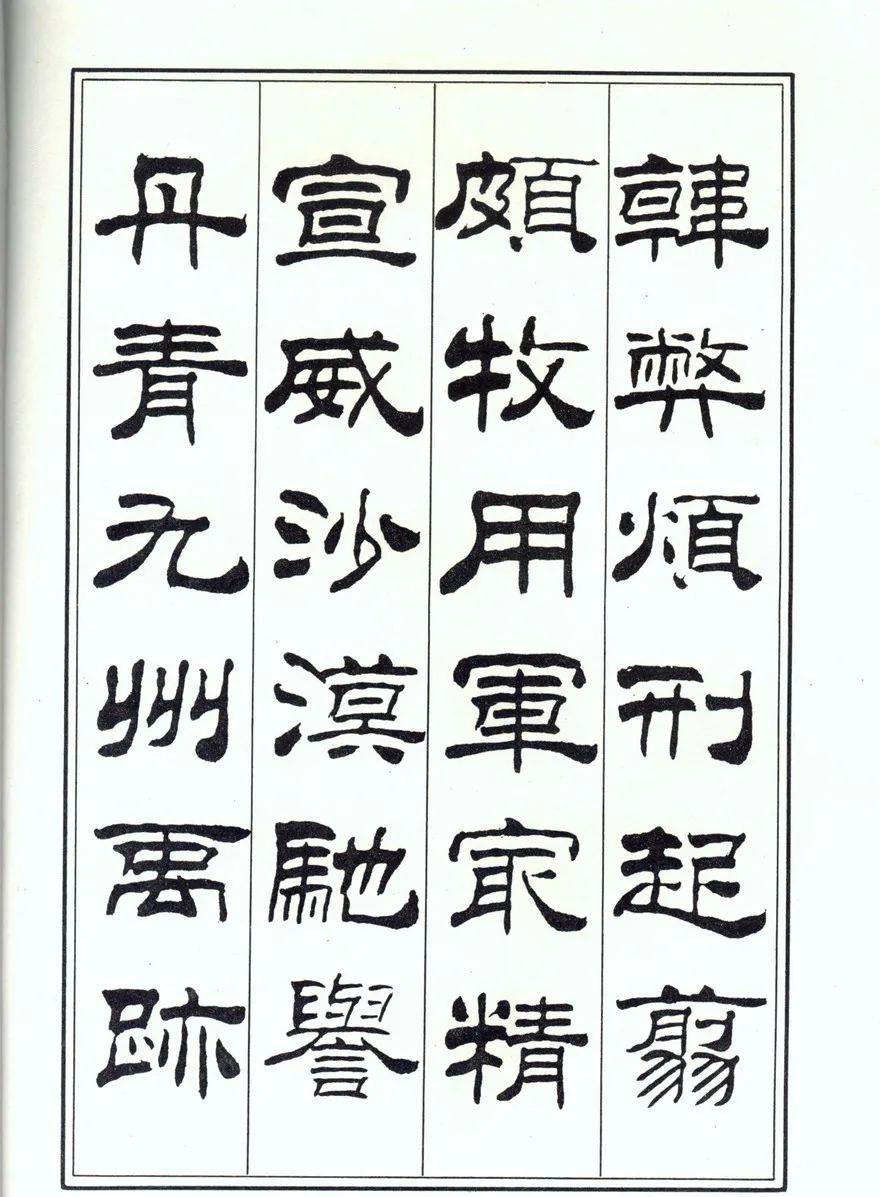 韓弊煩刑起翦
頗牧用軍冣精
宣威沙漠馳譽
丹青九州禹跡